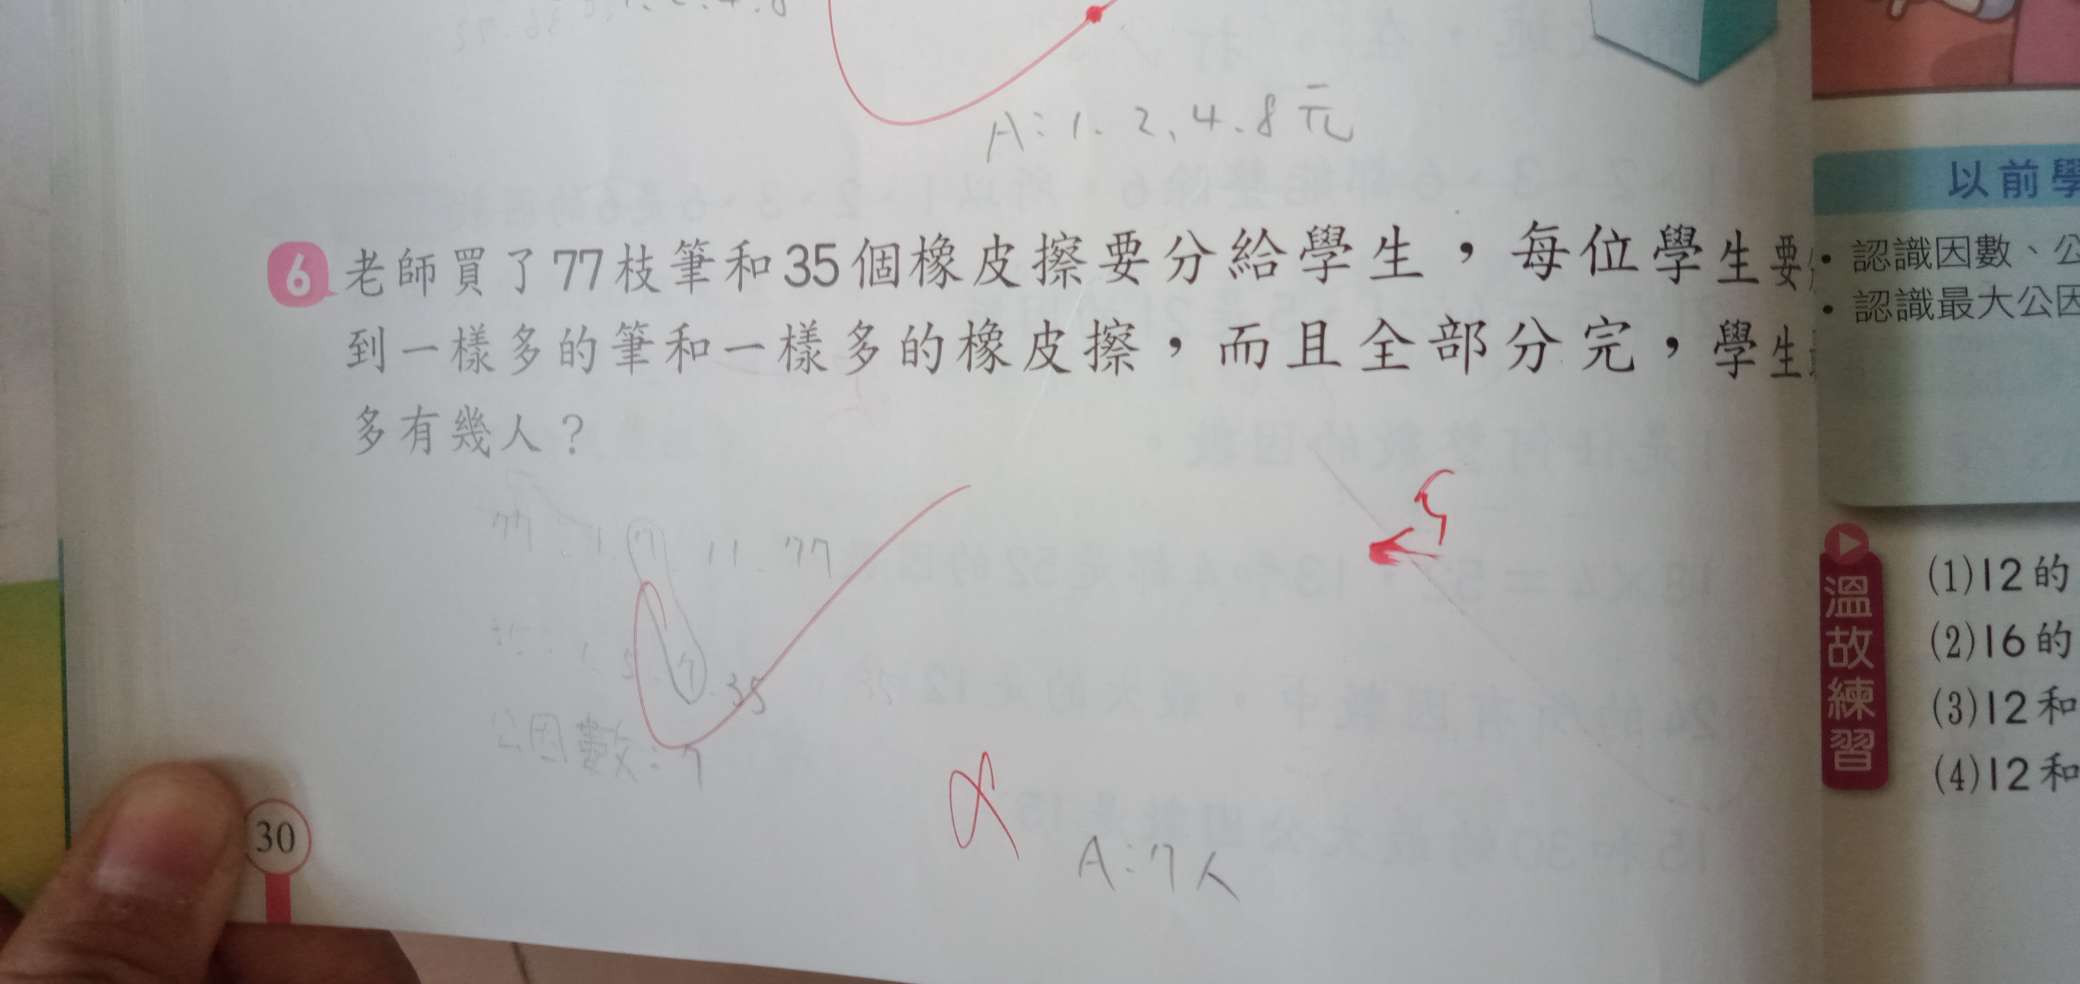 A:1、2、4、8元
6 老師買了77枝筆和35個橡皮擦要分給學生，每位學生要
到一樣多的筆和一樣多的橡皮擦，而且全部分完，學生
多有幾人？
77:1.7.11.77
35:1.5.7.35
公因數:7
A:7人
30
以前學
・認識因數、公
・認識最大公因
溫故練習
(1)12的
(2)16的
(3)12和
(4)12和